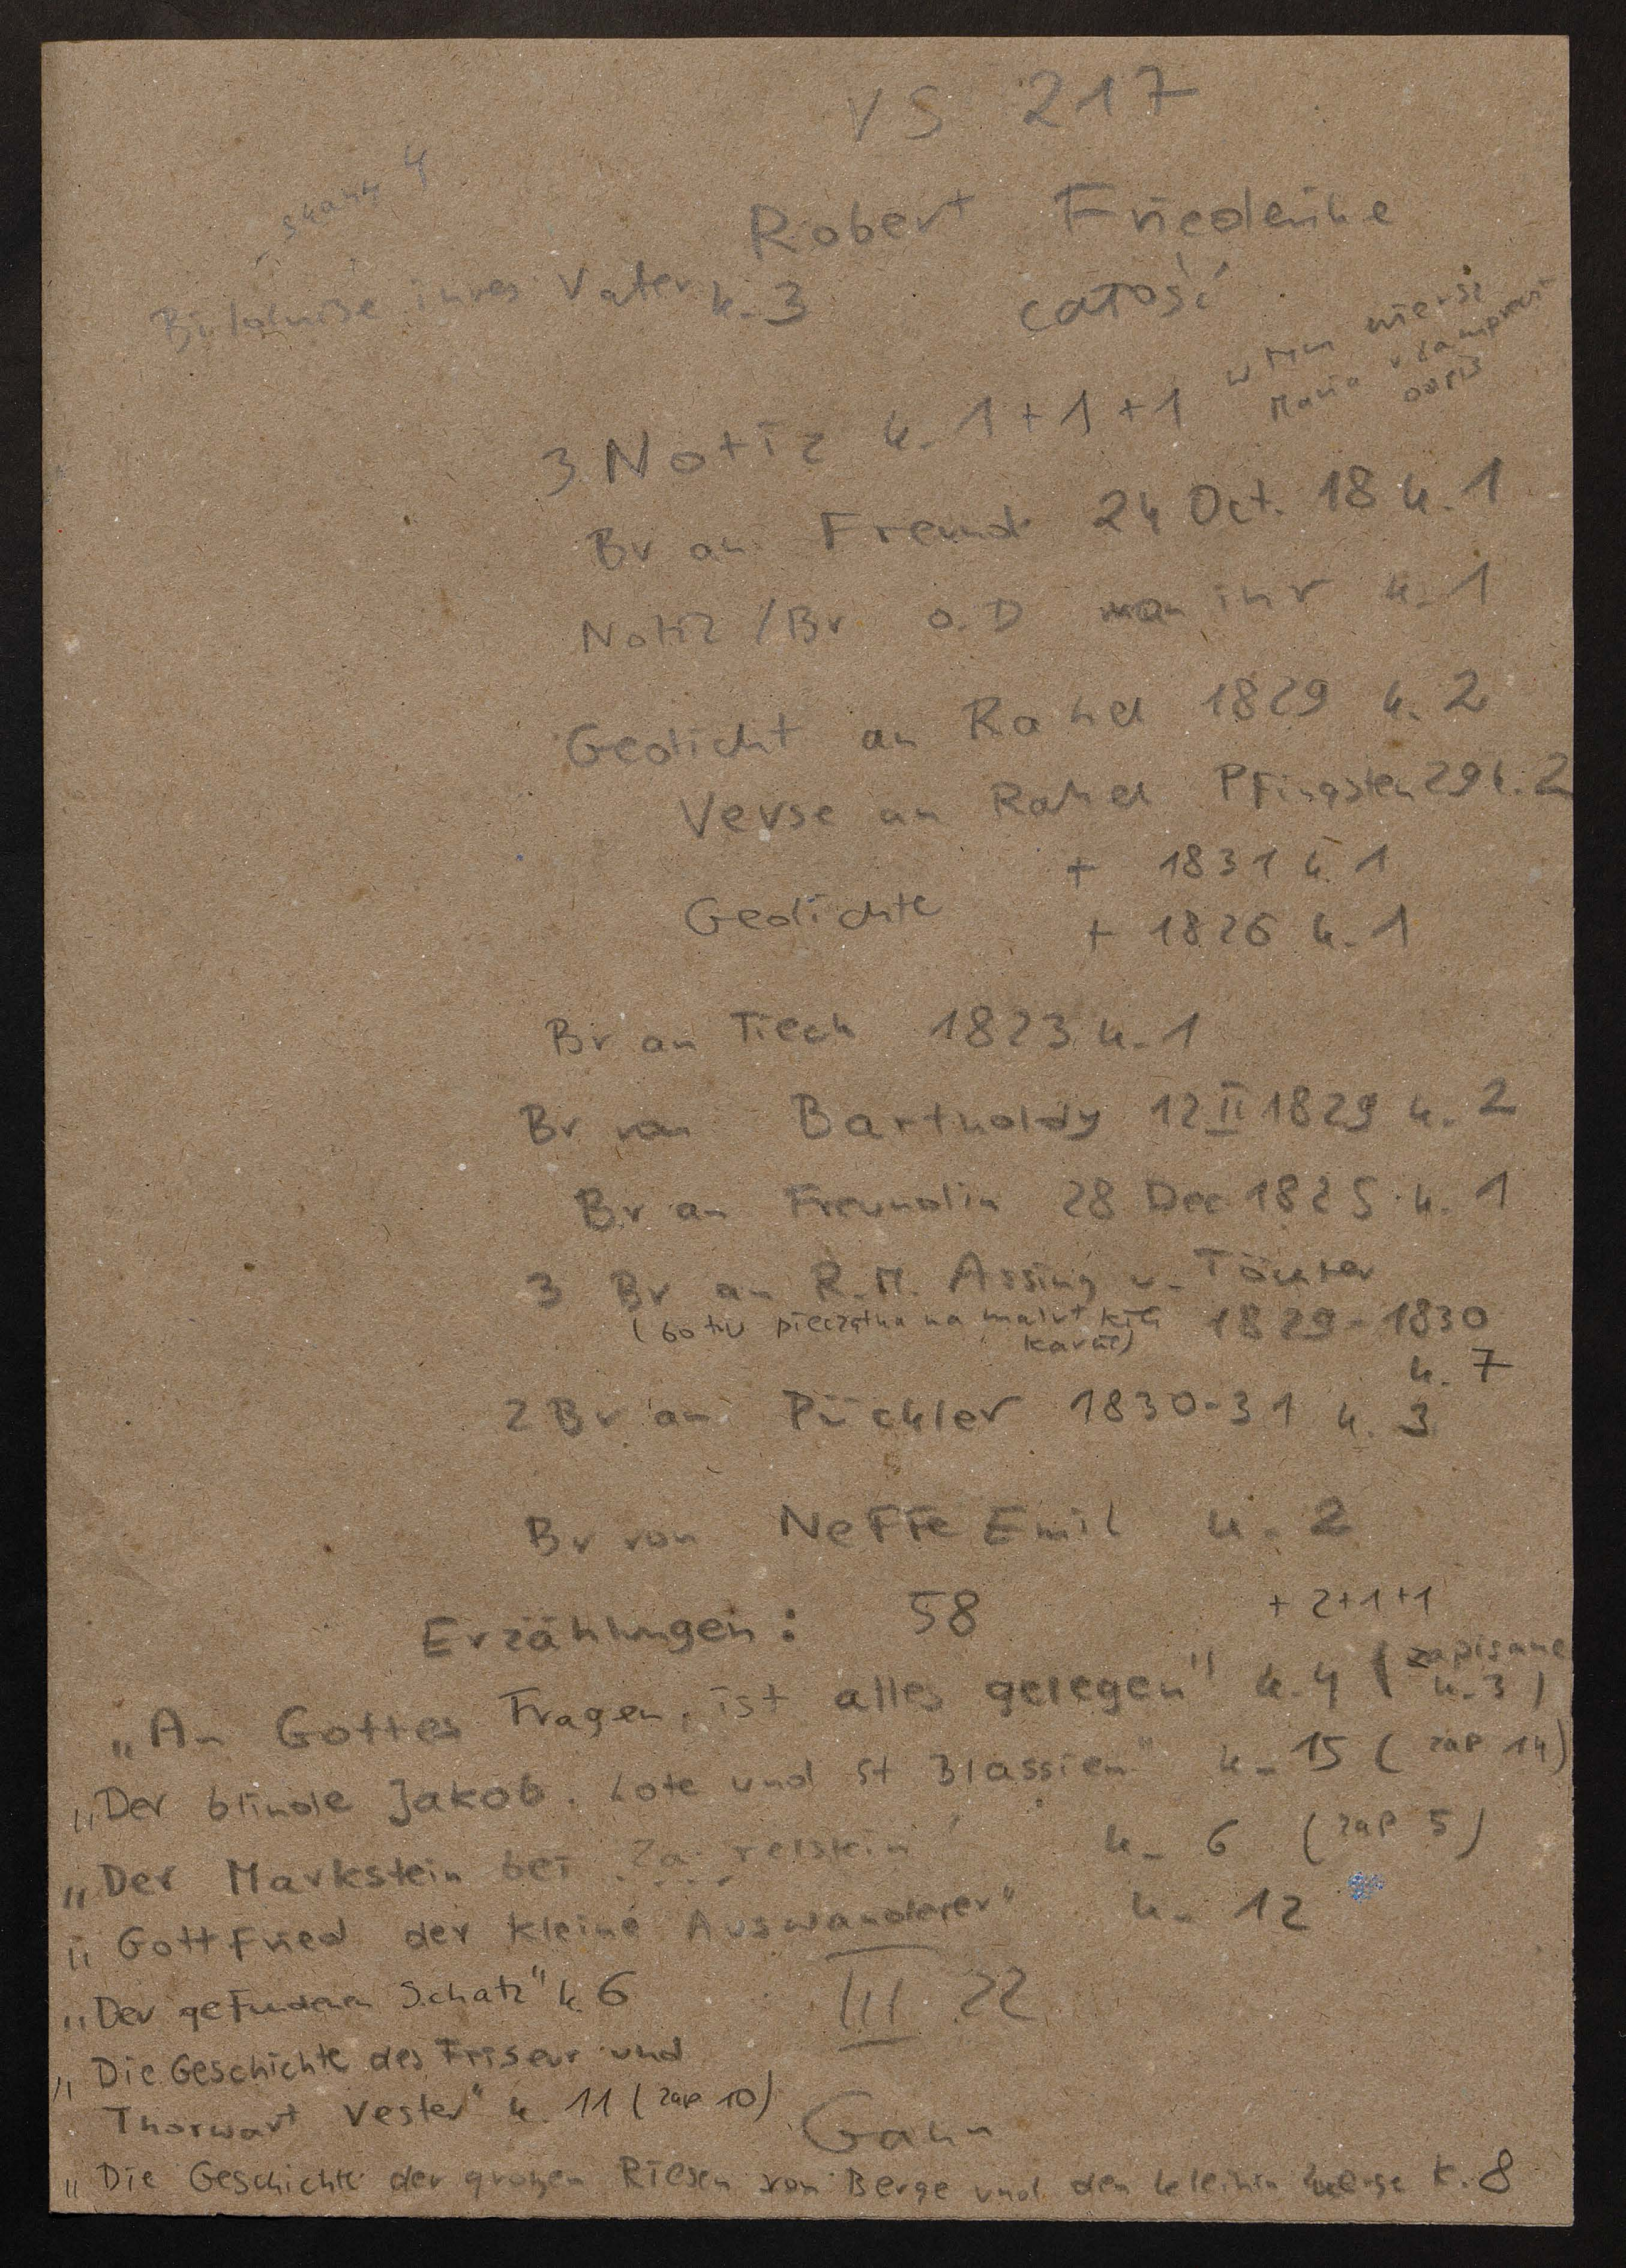 VS 217
skany 4
Robert Friederike
Bildniße ihres Vater k. 3
całość
3 Notiz k. 1 + 1 + 1 w tym wiersz
Maria odpis
Br an Freund 24 Oct. 18 k. 1
Notiz / Br o. D von ihr k. 1
Gedicht an Rahel 1829 k. 2
Verse an Rahel Pfingsten 29 k. 2
+ 1831 k. 1
Gedichte + 1826 k. 1
Br an Tieck 1823 k. 1
Br von Bartholdy 12 II 1829 k. 2
Br an Freundin 28 Dec 1825 k. 1
3 Br an R. M. Assing u. Töchter
pieczątka na 1829 - 1830
karcie)
k. 7
2 Br an Pückler 1830-31 k. 3
Br von Neffe Emil k. 2
Erzählungen: 58 + 2+1+1
„An Gottes Fragen, ist alles gelegen" k. 4 ( zapisane
k. 3 )
„Der blinde Jakob. Lote und St Blassien" k. 15 ( zap 14)
„Der Markstein bei k. 6 (zap 5)
„Gottfried der kleine Auswanderer" k. 12
„Der gefundenen Schatz" k. 6
III 22
„Die Geschichte des Friseur und
Thorwart Vester" k. 11 ( zap 10)
Gahn
„Die Geschichte der großen Riesen vom Berge und den kleinen Zwerge k. 8